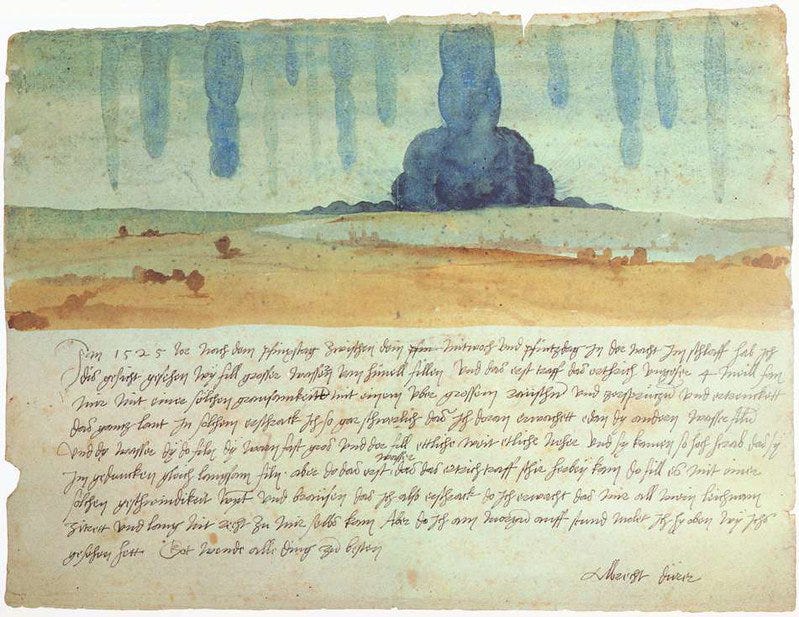 Im 1525 Jor nach dem pfinxstag zwischen dem mitwoch und pfintzdag in der nacht im schlaff hab ich
dis gesicht gesehen wy fill grosser wassern vom himell fillen Und das erst traff das erthrich ungefer 4 meill fan
mir mit einer solchen grausamkeitt mit einem uber grossem raüschn und zersprützn und ertrenckett
das gantz lant In solchem erschrack ich so gar schwerlich das ich doran erwachett edan dy andern wasser filn
Und dy wasser dy do filn dy warn fast gros und der fill ettliche weit etliche neher und sy kamen so hoch herab das sy
im gedancken gleich langsam filn. aber do das erst wasser das das ertrich traff schir herbey kam do fill es mit einer
solchen geschwindikeit wynt und braüsen das ich also erschrack do ich erwacht das mir all mein leichnam
zitrett und lang nit recht zu mir selbs kam Aber do ich am morgen auff stund molet ich hy oben wy ichs
gesehen hett. Got wende alle ding zu besten
Albrecht dürer